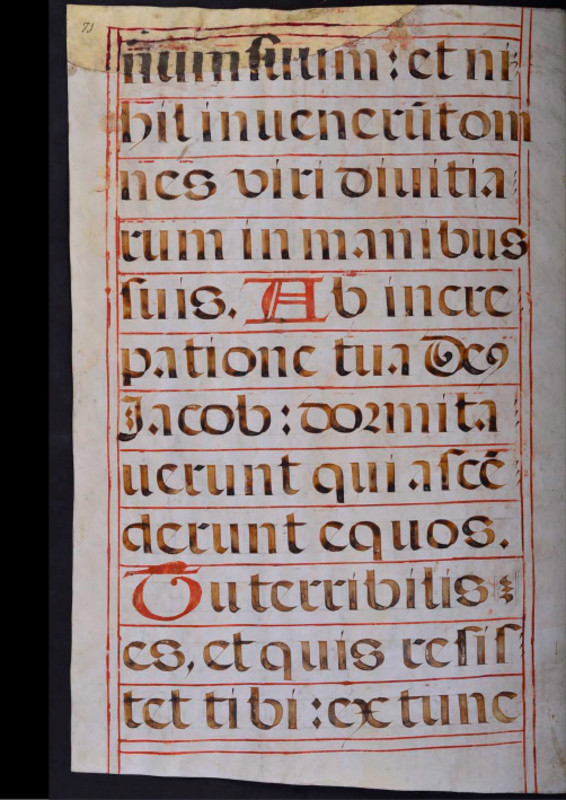 71
num suum : et ni
hil invenerūt om
nes viri divitia
rum in manibus
suis. Ab incre
patione tua Deꝰ
Jacob : dormita
uerunt qui ascē
derunt equos.
Tu terribilis
es, et quis resis
tet tibi : ex tunc